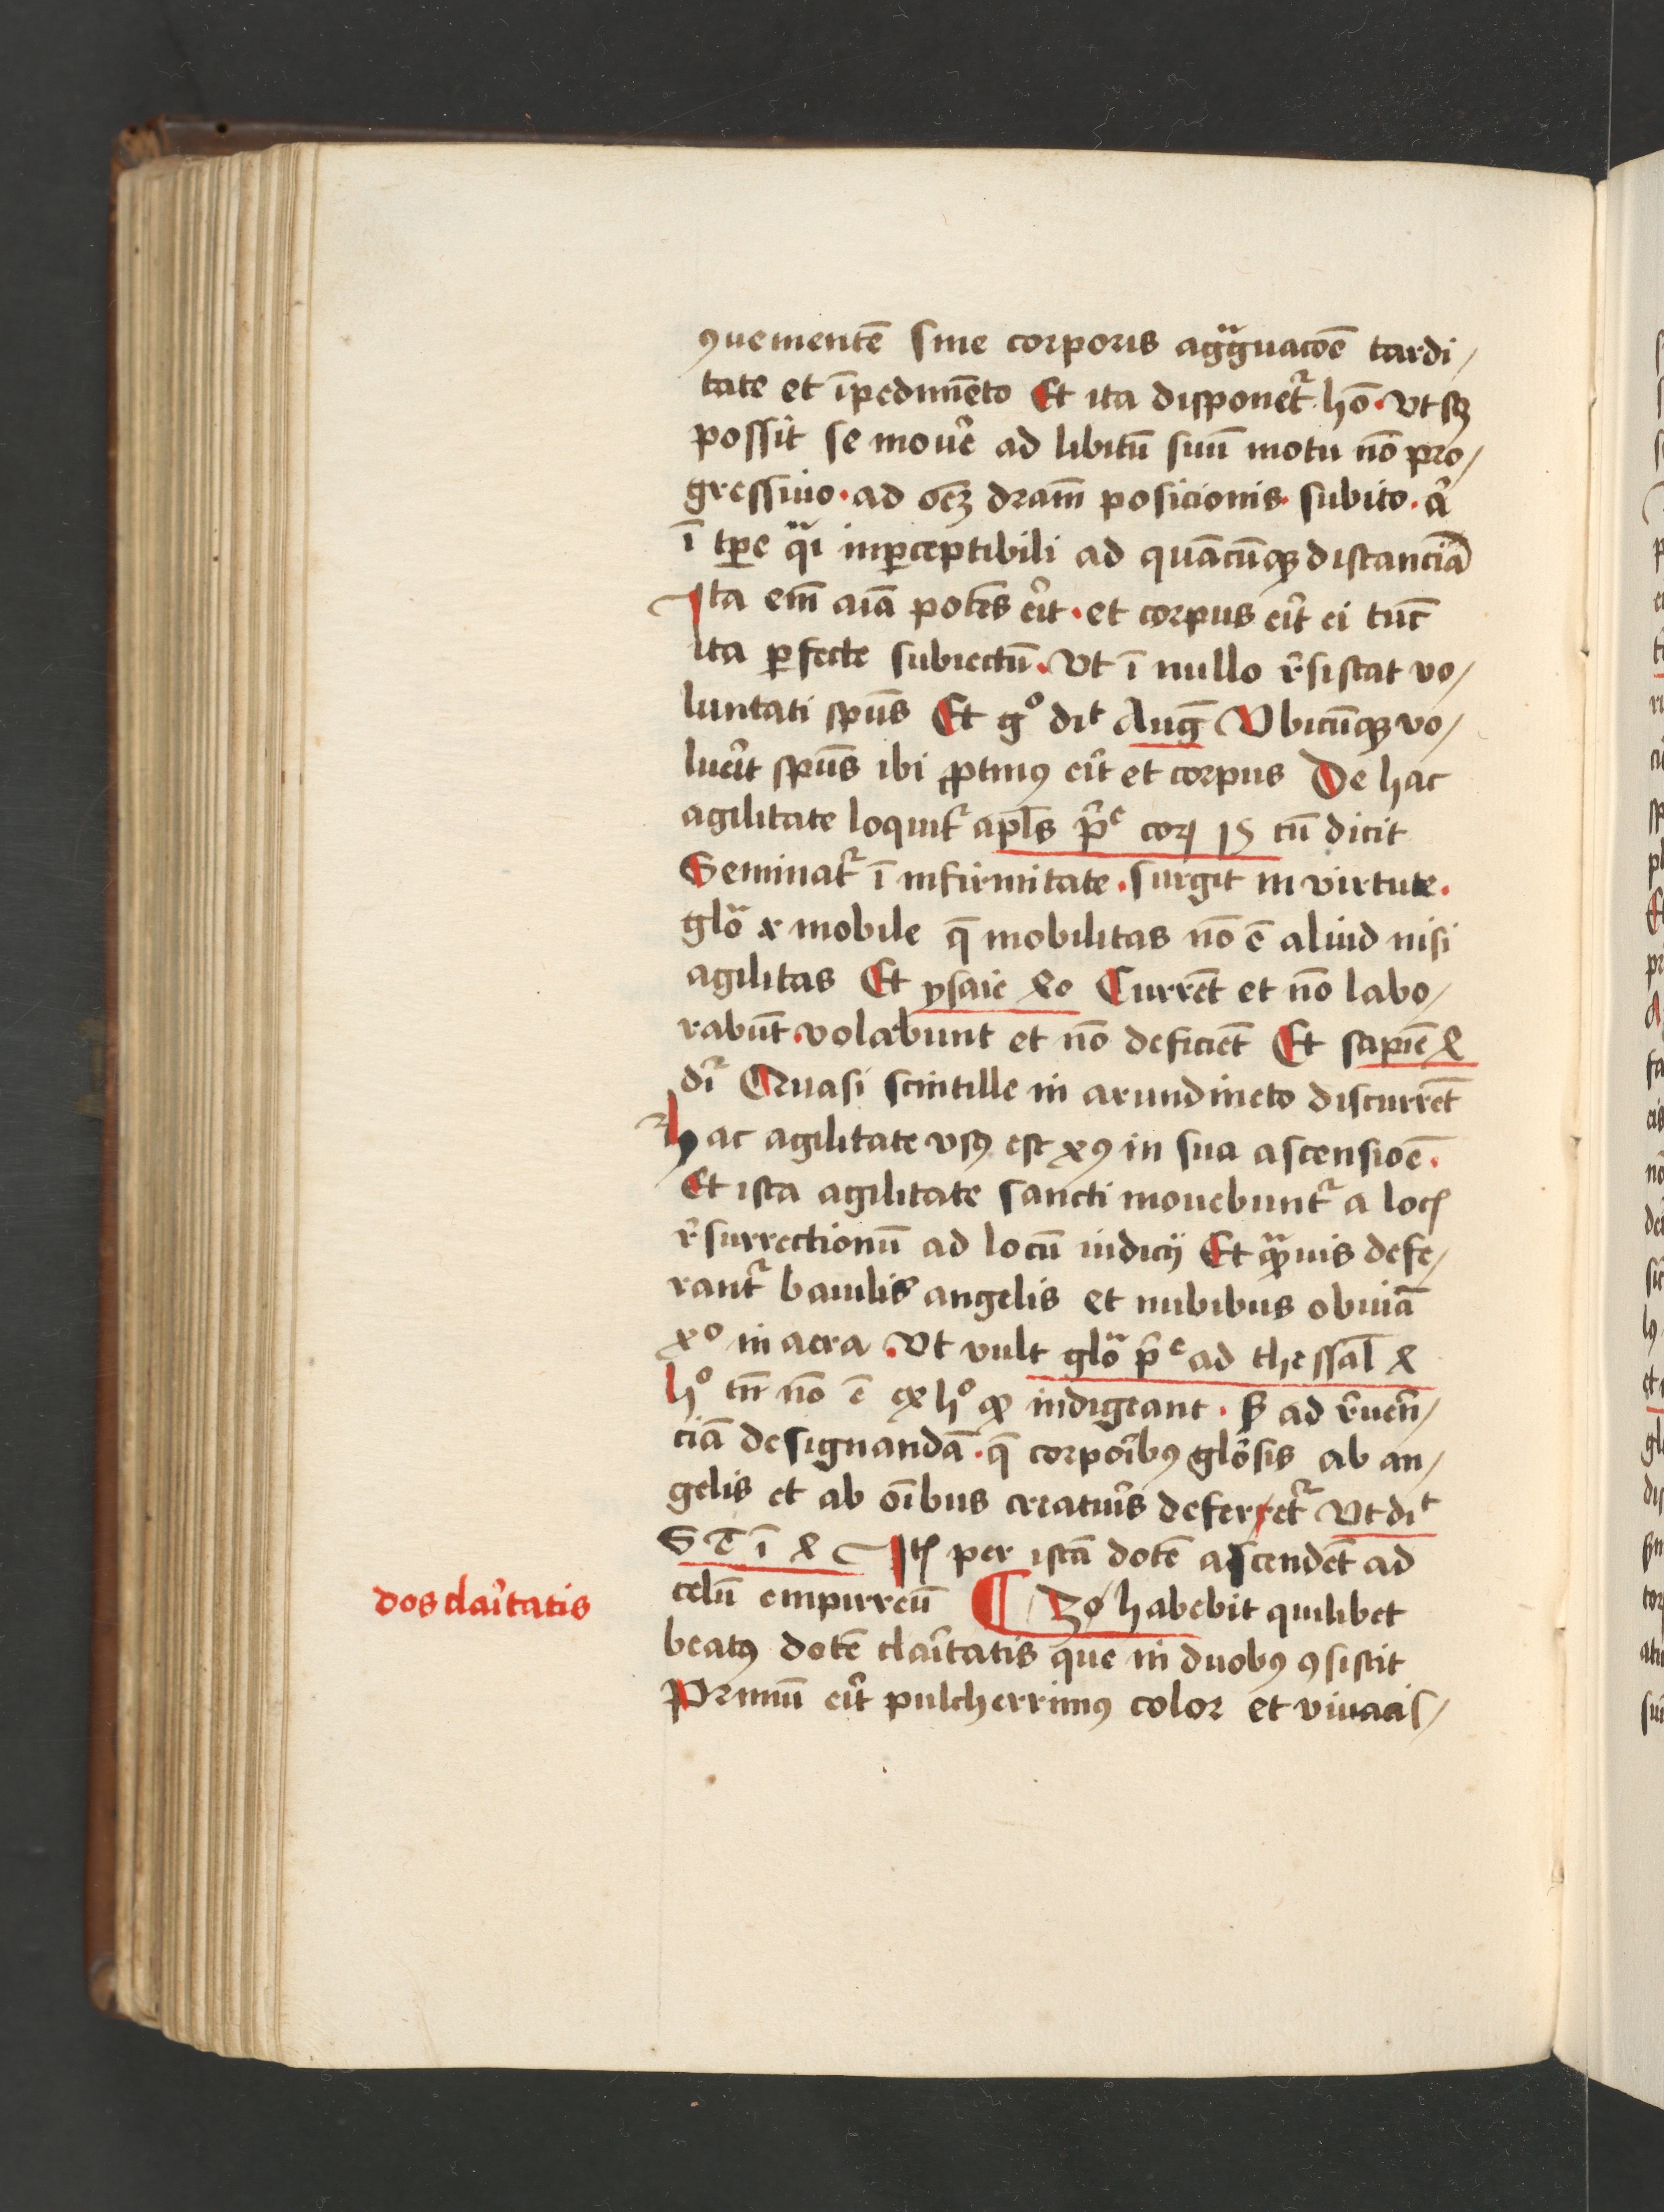 ꝯuementē sine corporis agg̈uacōe tardi/
tate et īpedimēto Et ita disponet᷑ hō · vt sꝫ
possit se mouͤe ad libitū suū motu nō pro/
gressiuo · ad oēꝫ dr̄am posicionis · subito · a᷑
ī tꝑe qͣi inꝑceptibili ad quācūqꝫ distanciā
Ita em̄ aīa potēs er̄it · et corpus er̄it ei tūc
ita ꝑfecte subiectū · vt ī nullo r̄sistat vo/
luntati spūs Et gͦ diͭ Auḡ Vbicūqꝫ vo/
luer̄it spūs ibi ꝓtinꝰ er̄it et corpus De hac
agilitate loquit᷑ apl̄s p̄ͤ corꝭ 15 cū dicit
Seminat᷑ ī infirmitate · surgit in virtute ·
glo̎ x mobile q̄ mobilitas nō ē aliud nisi
agilitas Et ysaie 40 Currēt et nō labo/
rabūt · volabunt et nō deficiēt Et sapiē 4
dr᷑ Quasi scintille in arundineto discurrēt
Hac agilitate vsꝰ est xꝰ in sua ascensiōe ·
Et ista agilitate sancti mouebunt᷑ a locꝭ
r̄surrectionū ad locū iudicij Et qͣ̄uis defe/
rant᷑ baiulis angelis et nubibus obuiā
xͦ in aera · Vt vult glo̎ p̄ͤ ad thessal̄ 4
hͦ tn̄ nō ē ex hͦ qꝫ indigeant · sꝫ ad r̄uerē/
ciā designandā · q̄ corporībꝰ glōsis ab an/
gelis et ab oībus creatur̄is deferret᷑ Vt diͭ
S T ī 4 Itꝭ per istā dotē ascendēt ad
celū empirreū ¶ 3ͦ habebit quilibet
dos clar̄itatis
beatꝰ dotē clar̄itatis que in duobꝰ ꝯsistit
Primū er̄it pulcherrimꝰ color et viuacis/